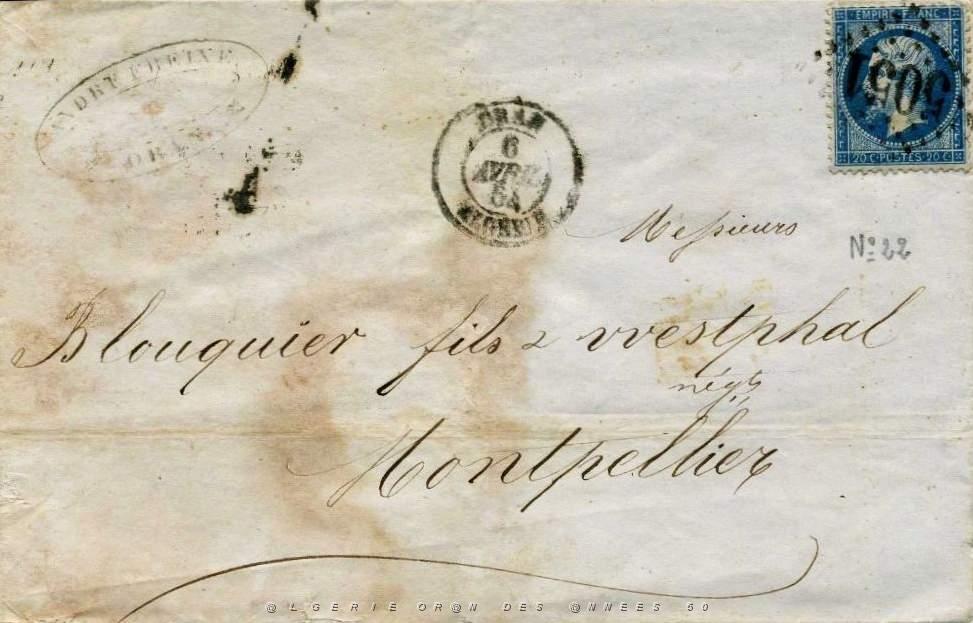 ORAN
EMPIRE FRANC
6
AVRIL
64
5051
ALGERIE
20 C. POSTES 20 C.
Messieurs
No. 22
Blouquier fils & Westphal
négts
Montpellier
@LGERIE OR@N DES @NNEES 50